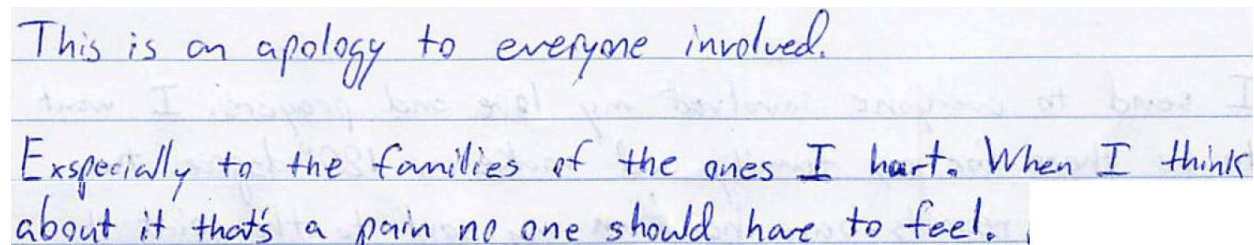 This is an apology to everyone involved.
Exspecially to the families of the ones I hurt. When I think
about it that's a pain no one should have to feel.